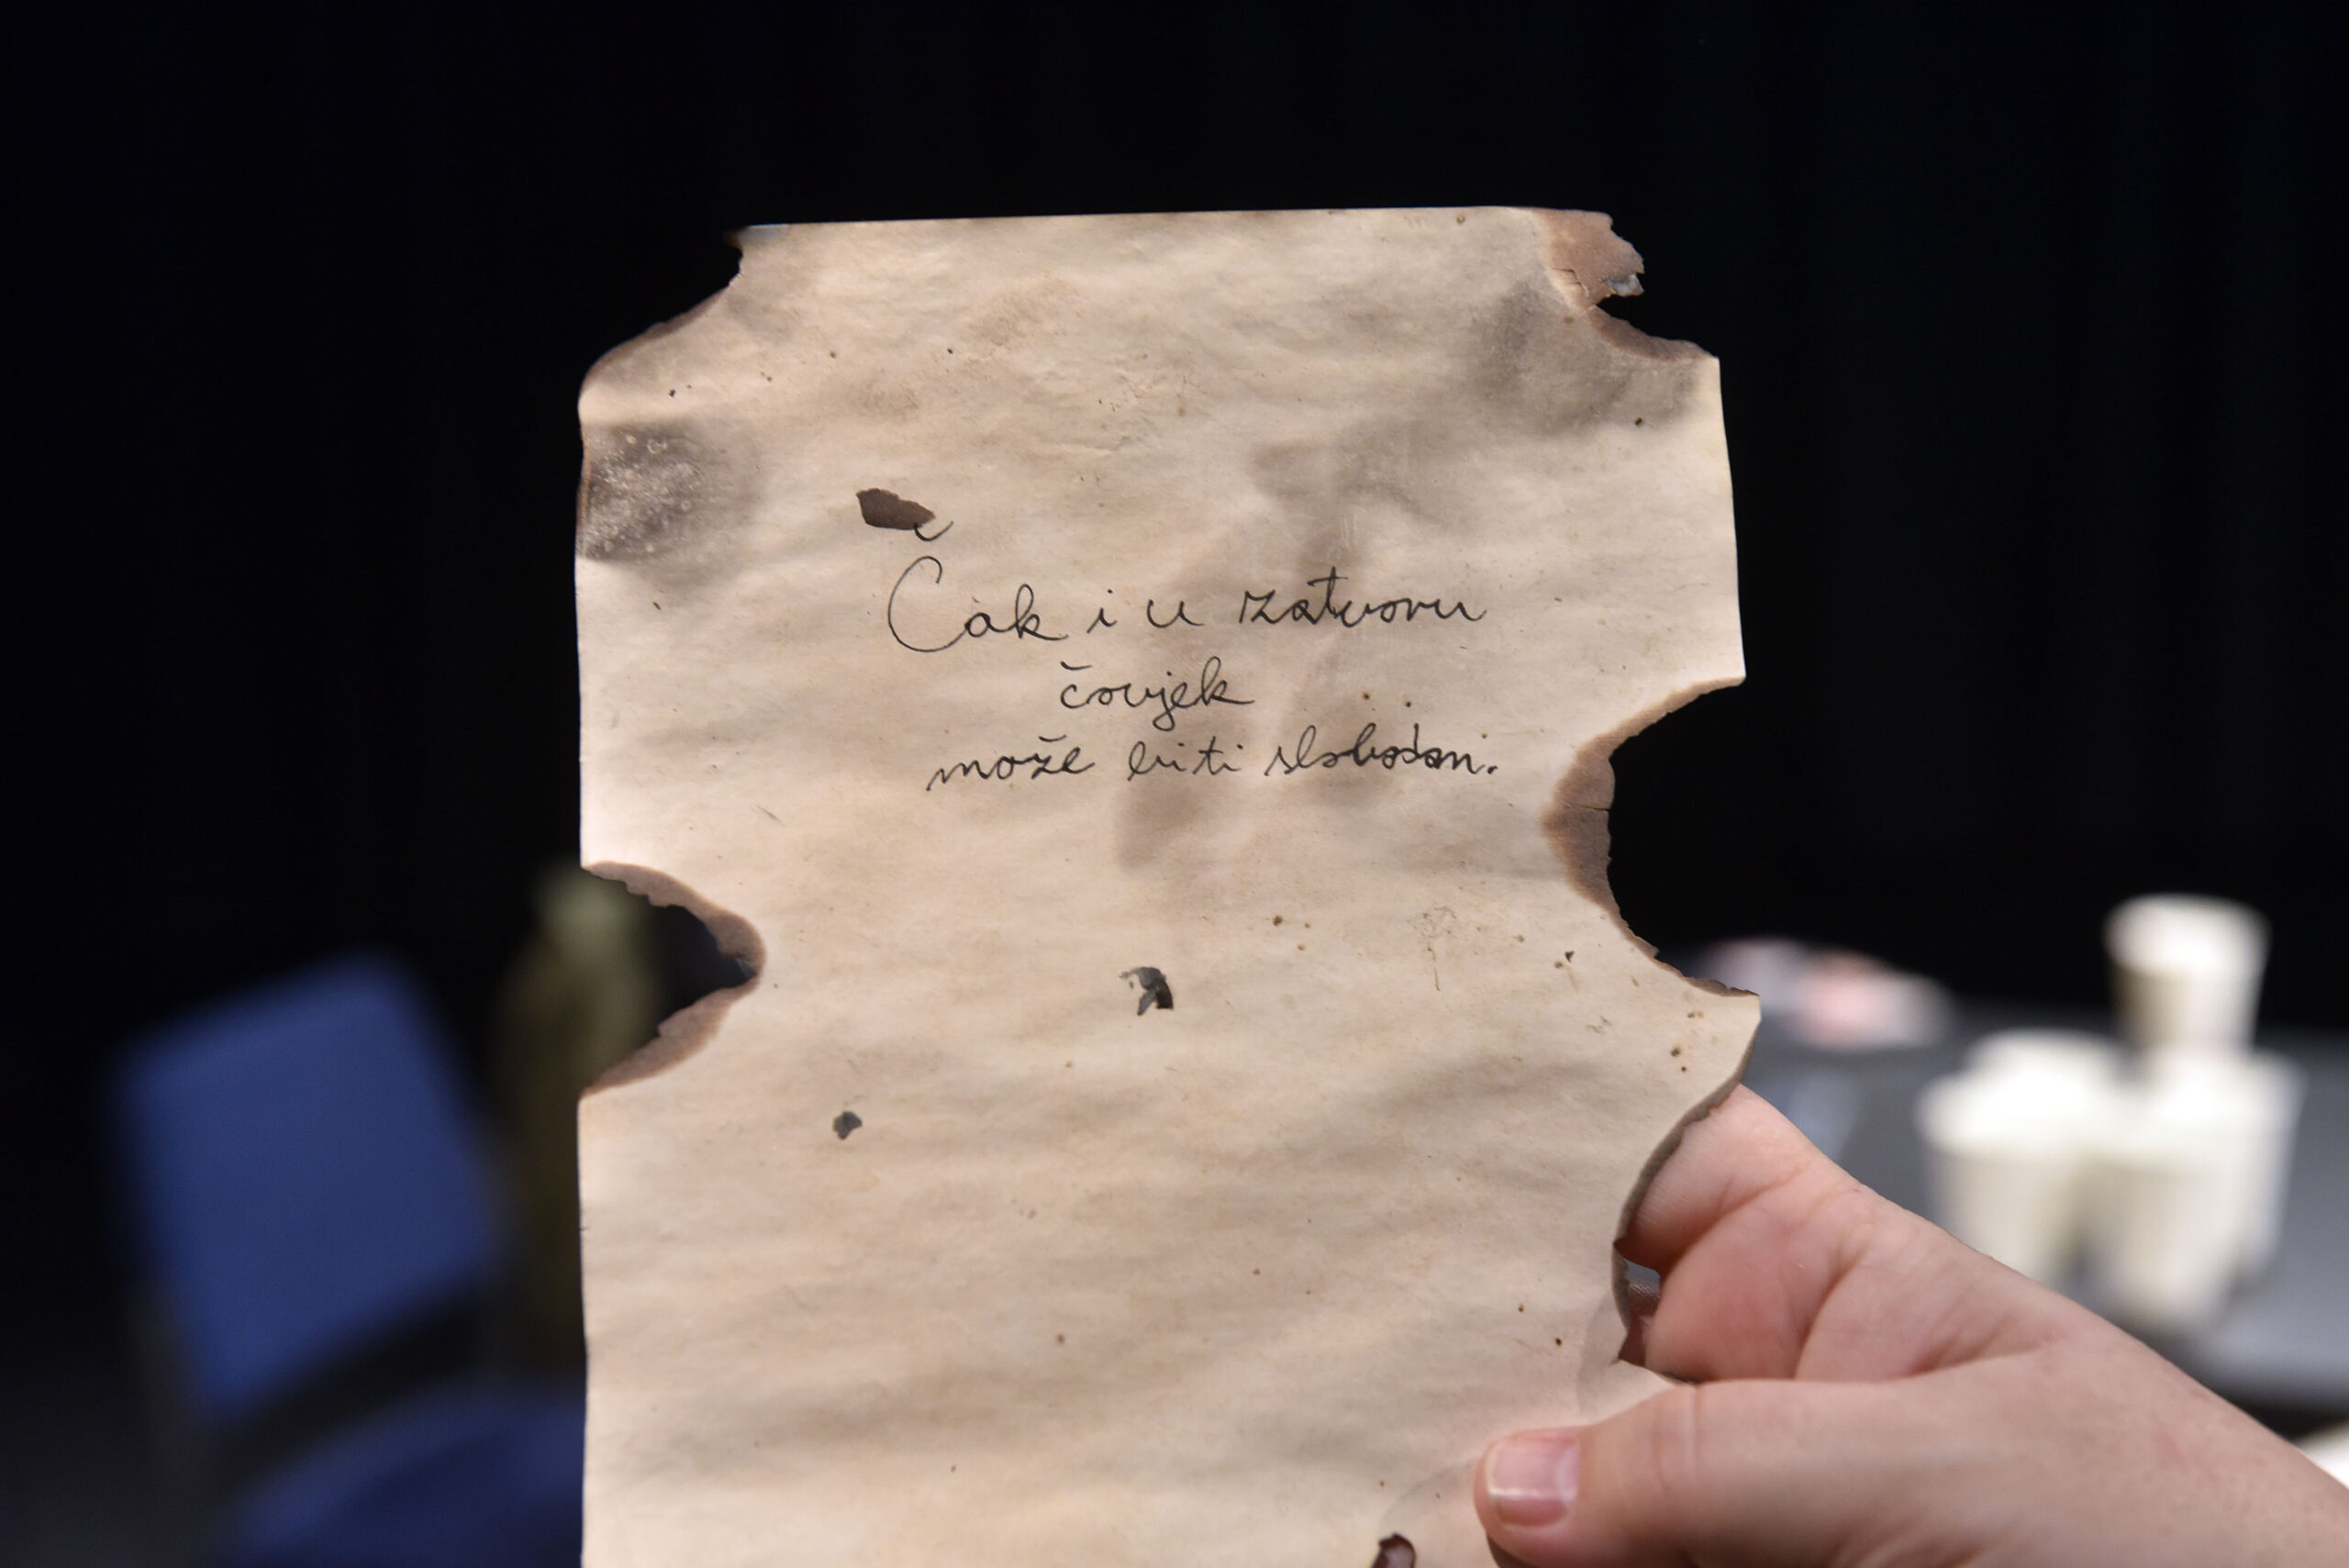 Čak i u zatvoru
čovjek
može biti slobodan.